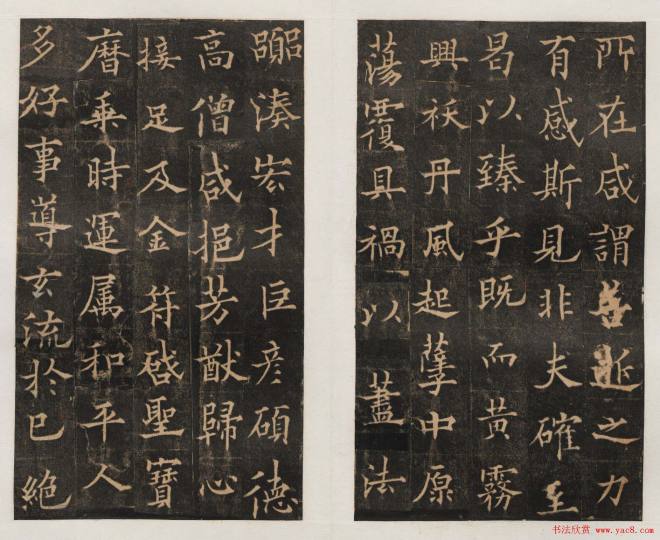 所在咸謂善逝之力
有感斯見非夫確至
曷以臻乎既而黃霧
興祅丹風起孽中原
蕩覆具禍以蓋法
湊宏才巨彦碩德
高僧咸挹芳猷歸心
接足及金符啓聖寶
曆乘時運属和平人
多好事導玄流於已絶
书法欣赏 www.yac8.com